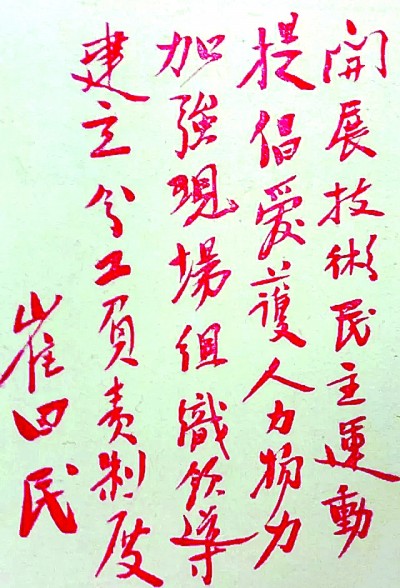 開展技術民主運動
提倡愛護人力物力
加強現場組織領導
建立分工負責制度
崔田民